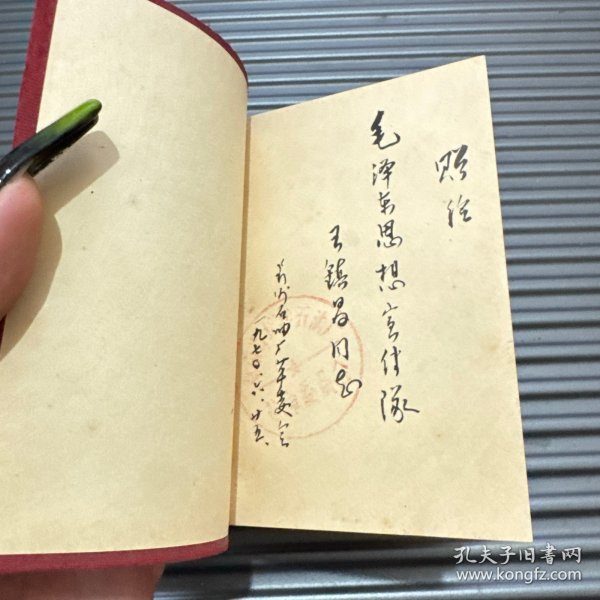 赠给
毛泽东思想宣传队
王镇昌同志
石油厂革委会
一九七〇.六.廿五.
孔夫子旧书网
www.kongfz.com